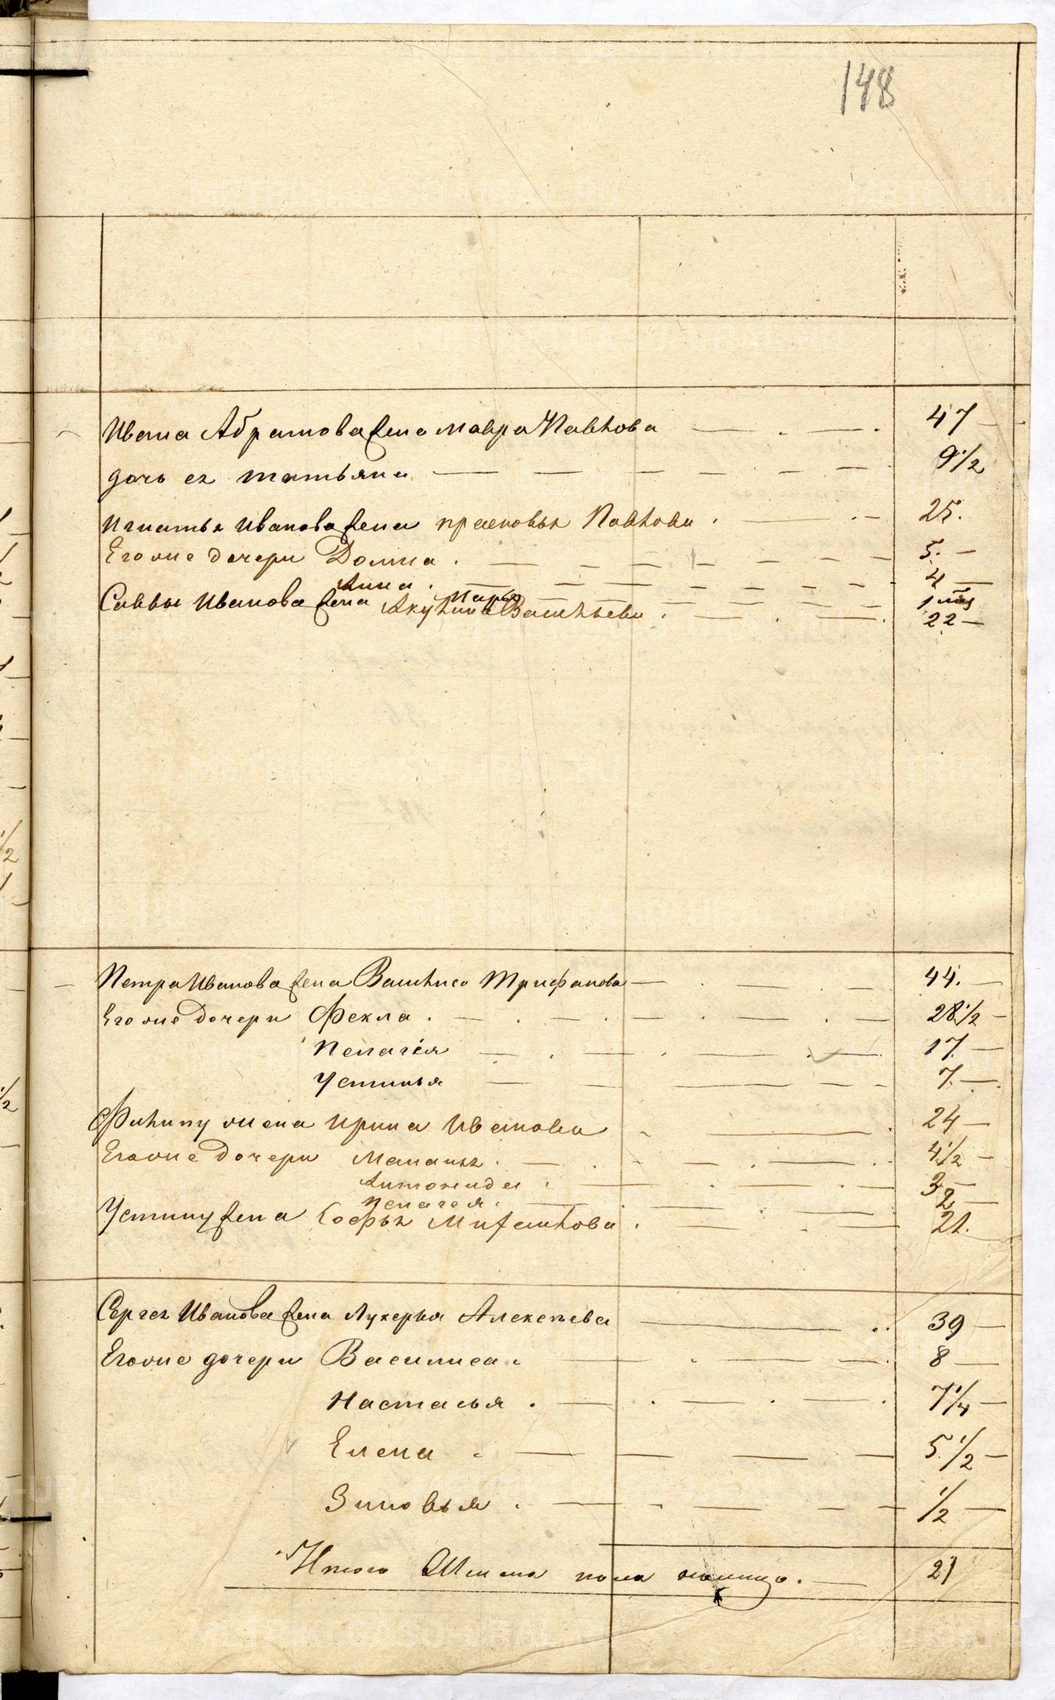 148
Ивана Абрамова жена Мавра Павлова 47
дочь ея Татьяна 9 1/2
Игнатья Иванова жена прасковья Павлова 25.
Его же дочери Домна 5.
Анна 4
Марья 1 мес
Саввы Иванова жена Акулина Васильева 22
Петра Иванова жена Василиса Трифанова 44.
Его же дочери Фекла 28 1/2
Пелагея 17
Устинья 7
Филипу жена Ирина Иванова 24
Его же дочери Маланья 4 1/2
Антонида 3
Пелагея 2
Устину жена Софья Михайлова 21.
Сергея Иванова жена Лукерья Алексеева 39
Его же дочери Василиса 8
Настасья 7 1/4
Елена 5 1/2
Зиновья 1/2
Итого Женска пола налицо. 21